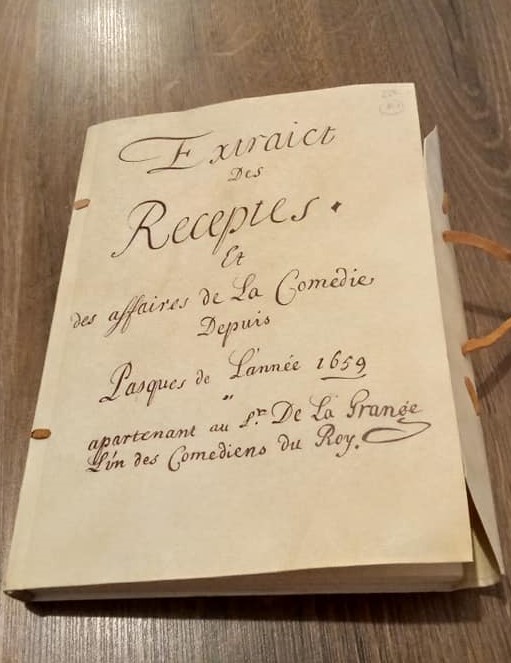 Extraict
Des
Receptes.
Et
des affaires de La Comedie
Depuis
Pasques de L'année 1659
apartenant au Sr. De La Grange
L'un des Comediens du Roy.